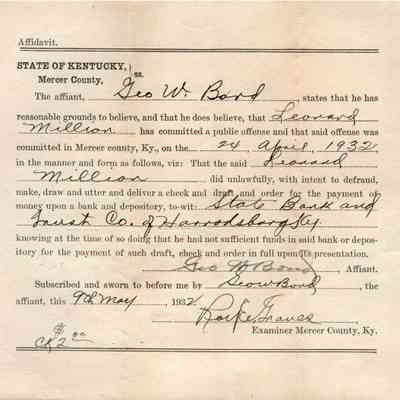 Affidavit.
STATE OF KENTUCKY, } ss.
Mercer County,
The affiant, Geo W. Bord, states that he has
reasonable grounds to believe, and that he does believe, that Leonard
Million has committed a public offense and that said offense was
committed in Mercer county, Ky., on the 24 April, 1932
in the manner and form as follows, viz: That the said Leonard
Million did unlawfully, with intent to defraud,
make, draw and utter and deliver a check and draft and order for the payment of
money upon a bank and depository, to-wit: State Bank and
Trust Co. of Harrodsburg Ky
knowing at the time of so doing that he had not sufficient funds in said bank or depos-
itory for the payment of such draft, check and order in full upon its presentation.
Geo W Bond, Affiant.
Subscribed and sworn to before me by Geo W Bond, the
affiant, this 9th May, 1932
Graves
Examiner Mercer County, Ky.
$
Ck 2 00